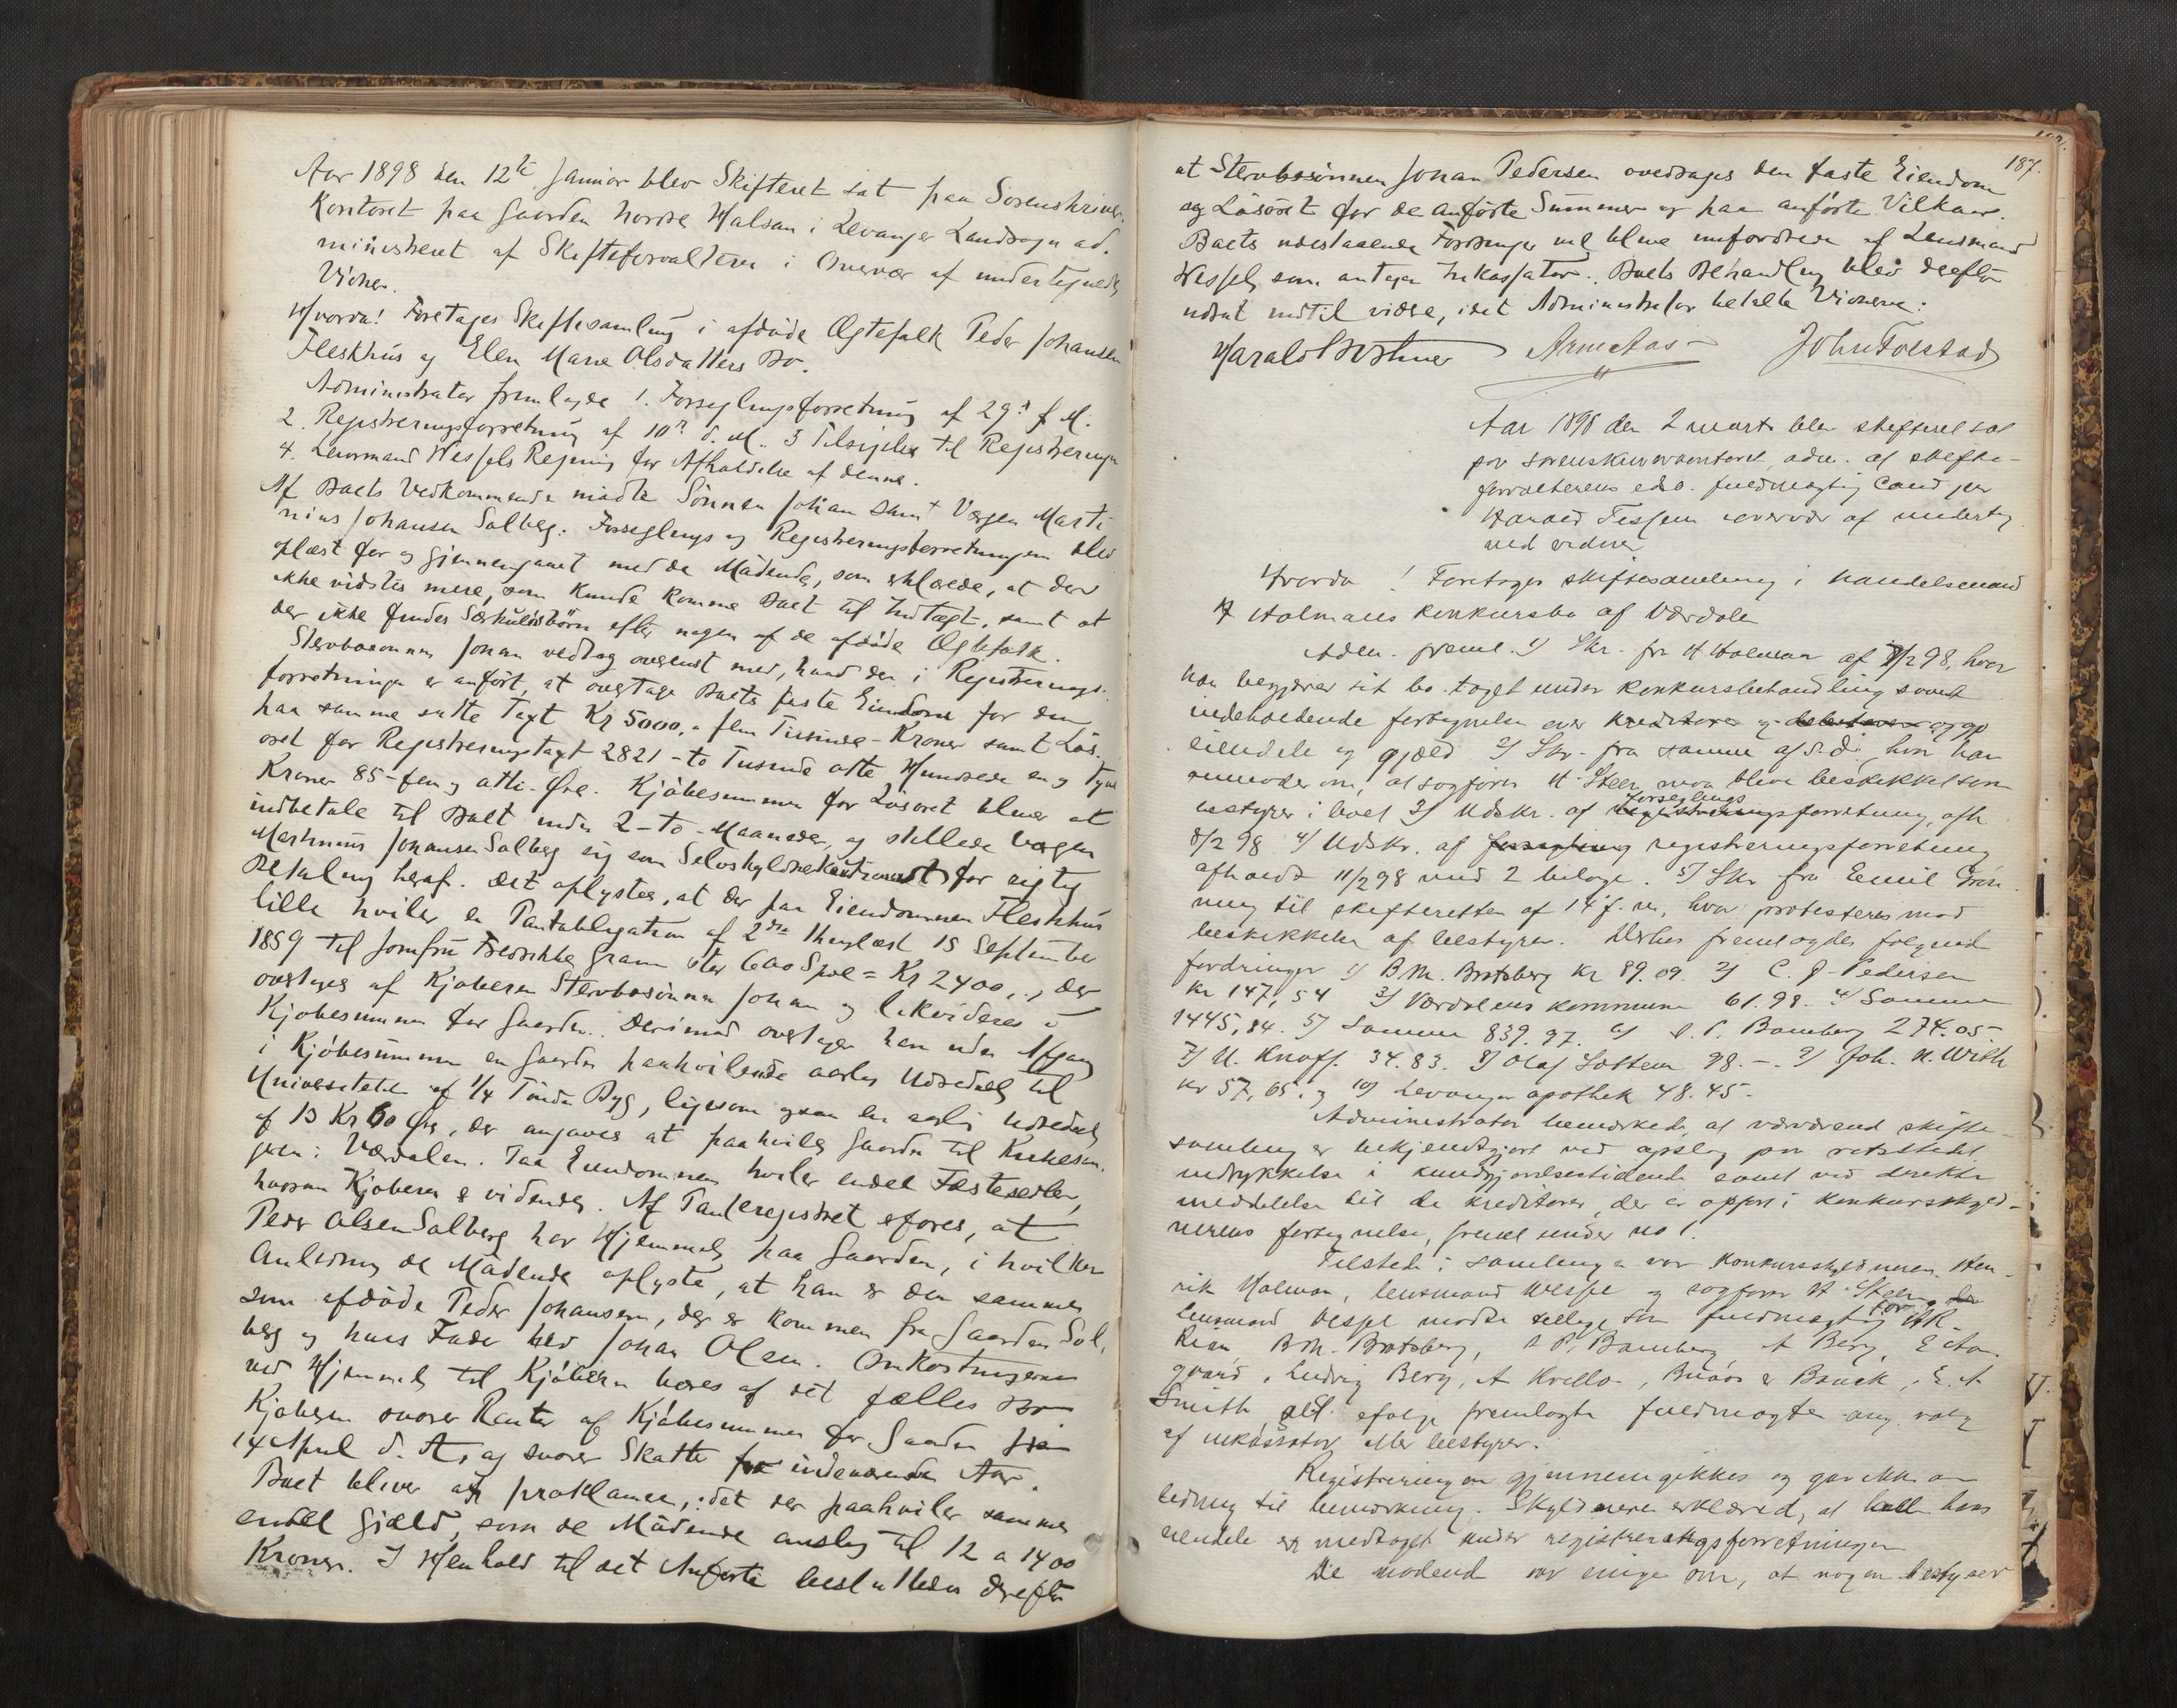 Aar 1898 den 12te Januar blev Skifteret sat paa Sorenskriver-
Kontoret paa Gaarden Nordre Halsan i Levanger Landsogn ad-
ministreret af Skifteforvalteren i Overvær af undertegnede
Vidner.
Hvorda! Foretages Skiftesamling i afdøde Ægtefolk Peder Johansen
Fleskhus og Elen Marie Olsdatters Bo.
Administrator fremlagde 1. Forseglingsforretning af 29de f. M.
2. Registreringsforretning af 10de d. M. 3 Tilsigelse til Registreringen
4. Lensmand Wessels Regning for Afholdelse af denne.
Af Boets Vedkommende mødte Sønnen Johan samt Vergen Marti-
nius Johansen Salberg. Forseglings og Registreringsforretningen blev
oplæst for og gjennemgaaet med de Mødende, som erklærede, at der
ikke vidstes mere, som kunde komme Boet til Indtægt, samt at
der ikke findes Særkuldsbørn efter nogen af de afdøde Ægtefolk.
Stervbosønnen Johan vedtog overenst med, hvad der i Registrerings-
forretningen er anført, at overtage Boets faste Eiendom for den
paa samme satte Taxt Kr 5000,- fem Tusinde - Kroner samt Løs-
øret for Registreringstaxt 2821 - to Tusinde otte Hundrede en og Tyve
Kroner 85 - fem og otti - Øre. Kjøbesummen for Løsøret bliver at
indbetale til Boet inden 2 - to - Maaneder, og stillede Vergen
Martinius Johansen Salberg sig som Selvskyldnerkautionist for rigtig
Betaling heraf. Det oplystes, at der paa Eiendommen Fleskhus
lille hviler en Pantobligation af 2den thinglæst 15 September
1859 til Jomfru Fredrikke Gram stor 600 Spd = Kr 2400,-, der
overtages af Kjøberen Stervbosønnen Johan og likvideres i
Kjøbesummen for Gaarden. Derimod overtager han uden Afgang
i Kjøbesummen en Gaarden paahvilende aarlig Udredsel til
Universitetet af 1/4 Tønde Byg, ligesom ogsaa en aarlig Udredsel
af 13 Kr 60 Øre, der angaves at paahvile Gaarden til Kirkesan-
gren i Værdalen. Paa Eiendommen hviler endel Fæstesedler,
hvorom Kjøberen er vidende. Af Panteregistret erfores, at
Peder Olsen Salberg har Hjemmel paa Gaarden, i hvilken
Anledning de Mødende oplyste, at han er den samme
som afdøde Peder Johansen, der er kommen fra Gaarden Sal-
berg og hvis Fader hed Johan Olsen. Omkostningerne
ved Hjemmel til Kjøberen bæres af det fælles Bo
Kjøberen svarer Renter af Kjøbesummen for Gaarden fra
14 April d. A., og svarer Skatte for indeværende Aar.
Boet bliver at proklamere, idet der paahviler samme
endel Gjæld, som de Mødende anslog til 12 a 1400
Kroner. I Henhold til det Anførte besluttedes derefter
187.
at Stervbosønnen Johan Pedersen overdrages den faste Eiendom
og Løsøret for de anførte Summer og paa anførte Vilkaar.
Boets udestaaende Fordringer vil blive infordrede af Lensmand
Wessel, som antages Inkassator. Boets Behandling blev derefter
udsat indtil videre, idet Administrator betalte Vidnerne:
Harald Arne Aas John Tolstad
Aar 1898 den 2 marts blev skifteret sat
paa sorenskriverkontoret, adm. af skifte-
forvalterens eds. fuldmægtig cand jur
Harald Tessem i overvær af underteg-
ned vidner
Hvorda! Foretages skiftesamling i handelsmand
H Holmans konkursbo af Værdalen
Adm. freml. 1) Skr. fra H Holman af 8/2 98, hvor
han begjærer sit bo taget under konkursbehandling samt
indeholdende fortegnelse over kreditorer og debitorer og op
eiendele og gjæld 2) Skr. fra samme af s.d., hvor han
anmoder om, at sagfører H Steen maa blive beskikket som
bestyrer i boet 3) Udskr. af registreringsforretning, afh forseglings
8/2 98 4/ Udskr. af forsegling registreringsforretning
afholdt 11/2 98 med 2 bilage. 5) Skr fra Eemil Grøn-
ning til skifteretten af 14 f. m., hvor protesteres mod
beskikkelse af bestyrer. Derhos fremlagdes følgende
fordringer 1) B. M. Bratsberg kr 89.09. 2) C. J. Pedersen
kr 147,54 3) Værdalens kommune 61.98. 4/ Samme
1445,84. 5) Samme 839.97. 6) S. P. Bamberg 274.05.
7) U. Knoff 34.83. 8) Olaf Sottem 98.-. 9) Joh. N. With
kr 57,65. og 10) Levanger apothek 48.45.
Administrator bemærkede, at nærværende skifte-
samling er bekjendtgjort ved opslag paa retsstedet,
indrykkelse i kundgjørelsestidende samt ved direkte
meddelelse til de kreditorer, der er opført i konkursskyld-
nerens fortegnelse, freml under no 1.
Tilstede i samlingen var konkursskyldneren Hen-
rik Holman, lensmand Wessel og sagfører H. Steen.
lensmand Wessel mødte tillige som fuldmægtig for
B. M. Bratsberg, S P. Bamberg A Berg,
Ludvig Berg, A Kvello, Buaas & Bauck, E. A
Smith alt ifølge fremlagte fuldmagter ang. valg
af inkassator eller bestyrer.
Registreringen gjennemgikkes og gav ikke an-
ledning til bemærkning. Skyldneren erklæred, at hans
eiendele er medtaget under registreringsforretningen
De mødende var enige om, at nogen bestyrer